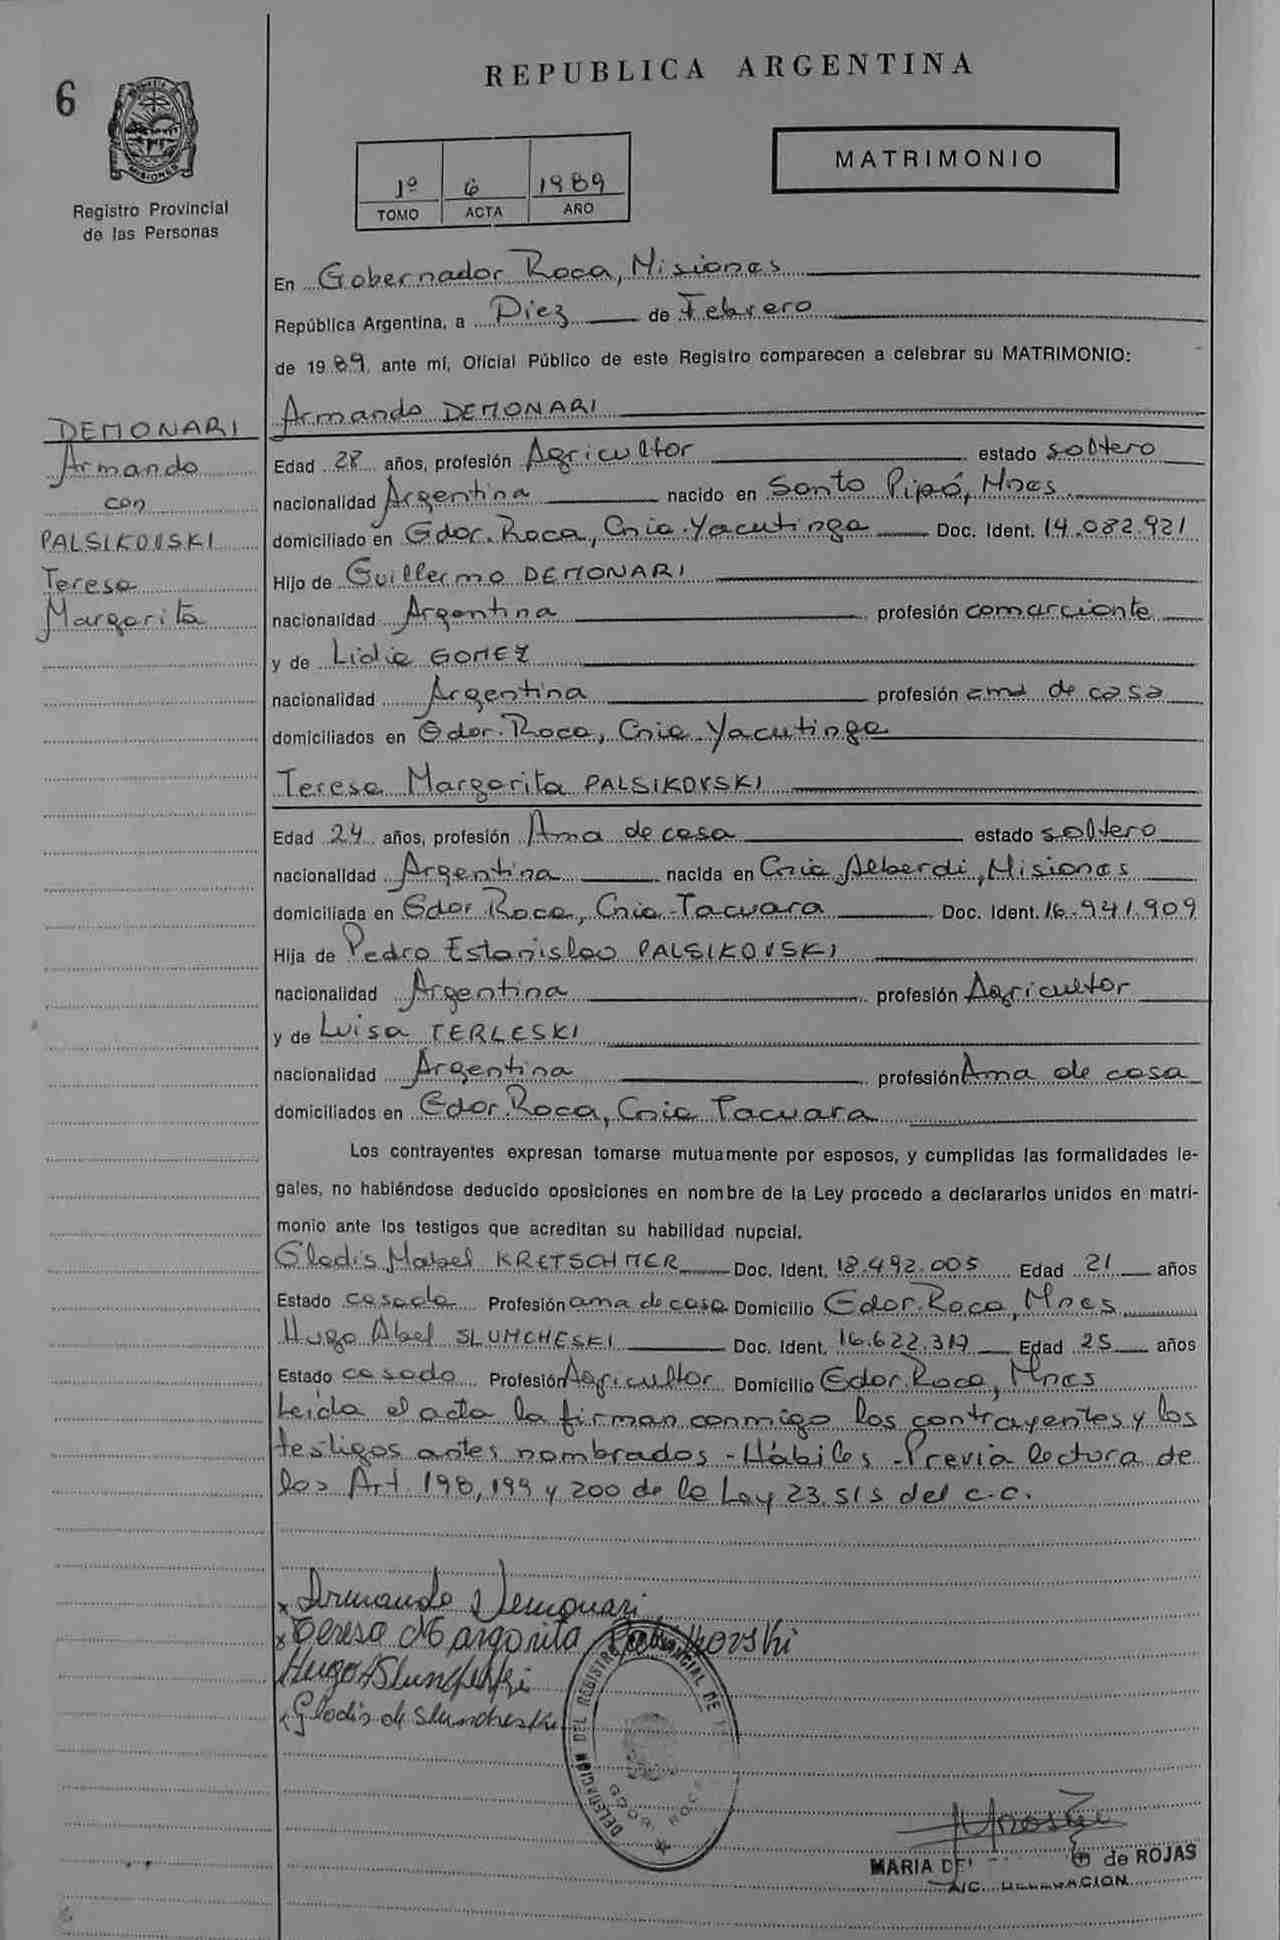 6
REPUBLICA ARGENTINA
MISIONES
Registro Provincial
de las Personas
MATRIMONIO
1º 6 1989
TOMO ACTA AÑO
En Gobernador Roca, Misiones
República Argentina, a Diez de Febrero
de 1989 ante mí, Oficial Público de este Registro comparecen a celebrar su MATRIMONIO:
DEMONARI
Armando
con
PALSIKOVSKI
Teresa
Margarita
Armando DEMONARI
Edad 28 años, profesión Agricultor estado soltero
nacionalidad Argentina nacido en Santo Pipó, Mnes
domiciliado en Gdor. Roca, Cnia. Yacutinga Doc. Ident. 14.082.921
Hijo de Guillermo DEMONARI
nacionalidad Argentina profesión comerciante
y de Lidia GOMEZ
nacionalidad Argentina profesión ama de casa
domiciliados en Gdor. Roca, Cnia Yacutinga
Teresa Margarita PALSIKOVSKI
Edad 24 años, profesión Ama de casa estado soltero
nacionalidad Argentina nacida en Cnia Alberdi, Misiones
domiciliada en Gdor Roca, Cnia Tacuara Doc. Ident. 16.941.909
Hija de Pedro Estanislao PALSIKOVSKI
nacionalidad Argentina profesión Agricultor
y de Luisa TERLESKI
nacionalidad Argentina profesión Ama de casa
domiciliados en Gdor. Roca, Cnia Tacuara
Los contrayentes expresan tomarse mutuamente por esposos, y cumplidas las formalidades le-
gales, no habiéndose deducido oposiciones en nombre de la Ley procedo a declararlos unidos en matri-
monio ante los testigos que acreditan su habilidad nupcial.
Gladis Mabel KRETSCHMER Doc. Ident. 18.492.005 Edad 21 años
Estado casada Profesión ama de casa Domicilio Gdor. Roca, Mnes
Hugo Abel SLUMCHESKI Doc. Ident. 16.622.317 Edad 25 años
Estado casado Profesión Agricultor Domicilio Gdor. Roca, Mnes
Leida el acta la firman conmigo los contrayentes y los
testigos antes nombrados - Hábiles - Previa lectura de
los Art. 198, 199 y 200 de la Ley 23.515 del C.C.
x Armando Demonari
x Teresa Margarita Palsikovski
Hugo A Sluncheski
x Gladis de Slumcheski
DELEGACION DEL REGISTRO PROVINCIAL DE
GDOR. ROCA
MARIA DEL de ROJAS
DELEGACION